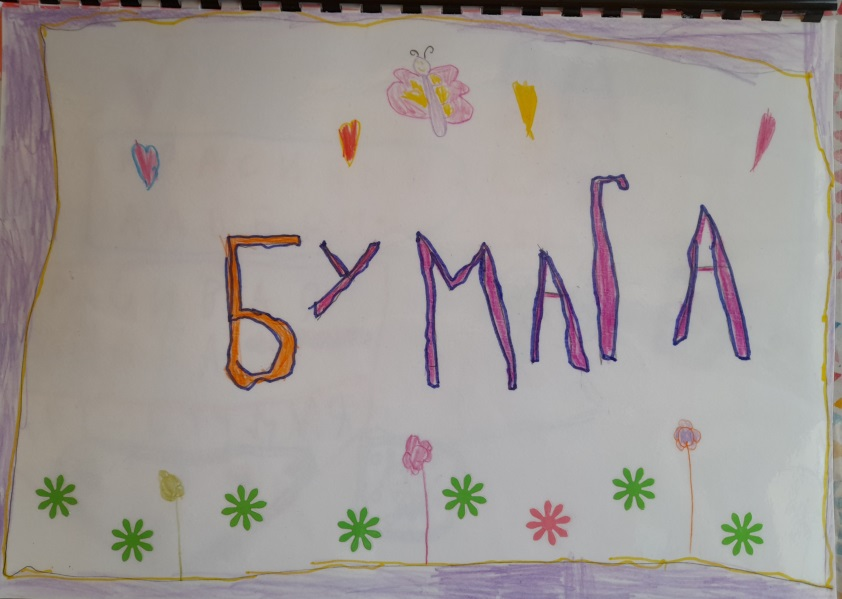 БУМАГА